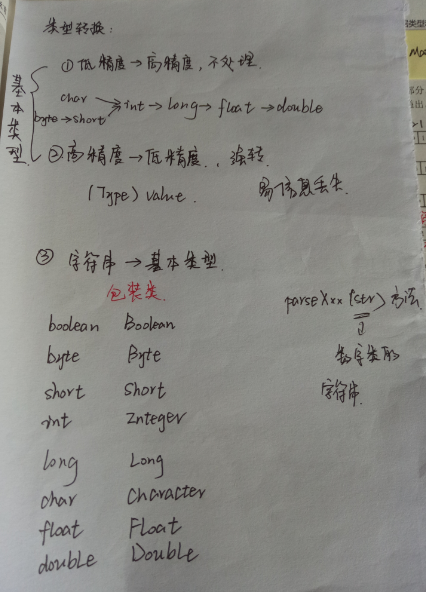 类型转换:
基本类型
① 低精度→高精度, 不处理.
char
byte→short→int→long→float→double
② 高精度→低精度., 强转
(Type) value. 易信息丢失.
③ 字符串→基本类型.
包装类.
parseXxx (str) 方法.
数字类型
字符串.
boolean Boolean
byte Byte
short Short
int Znteger
long Long
char Character
float Float
double Double